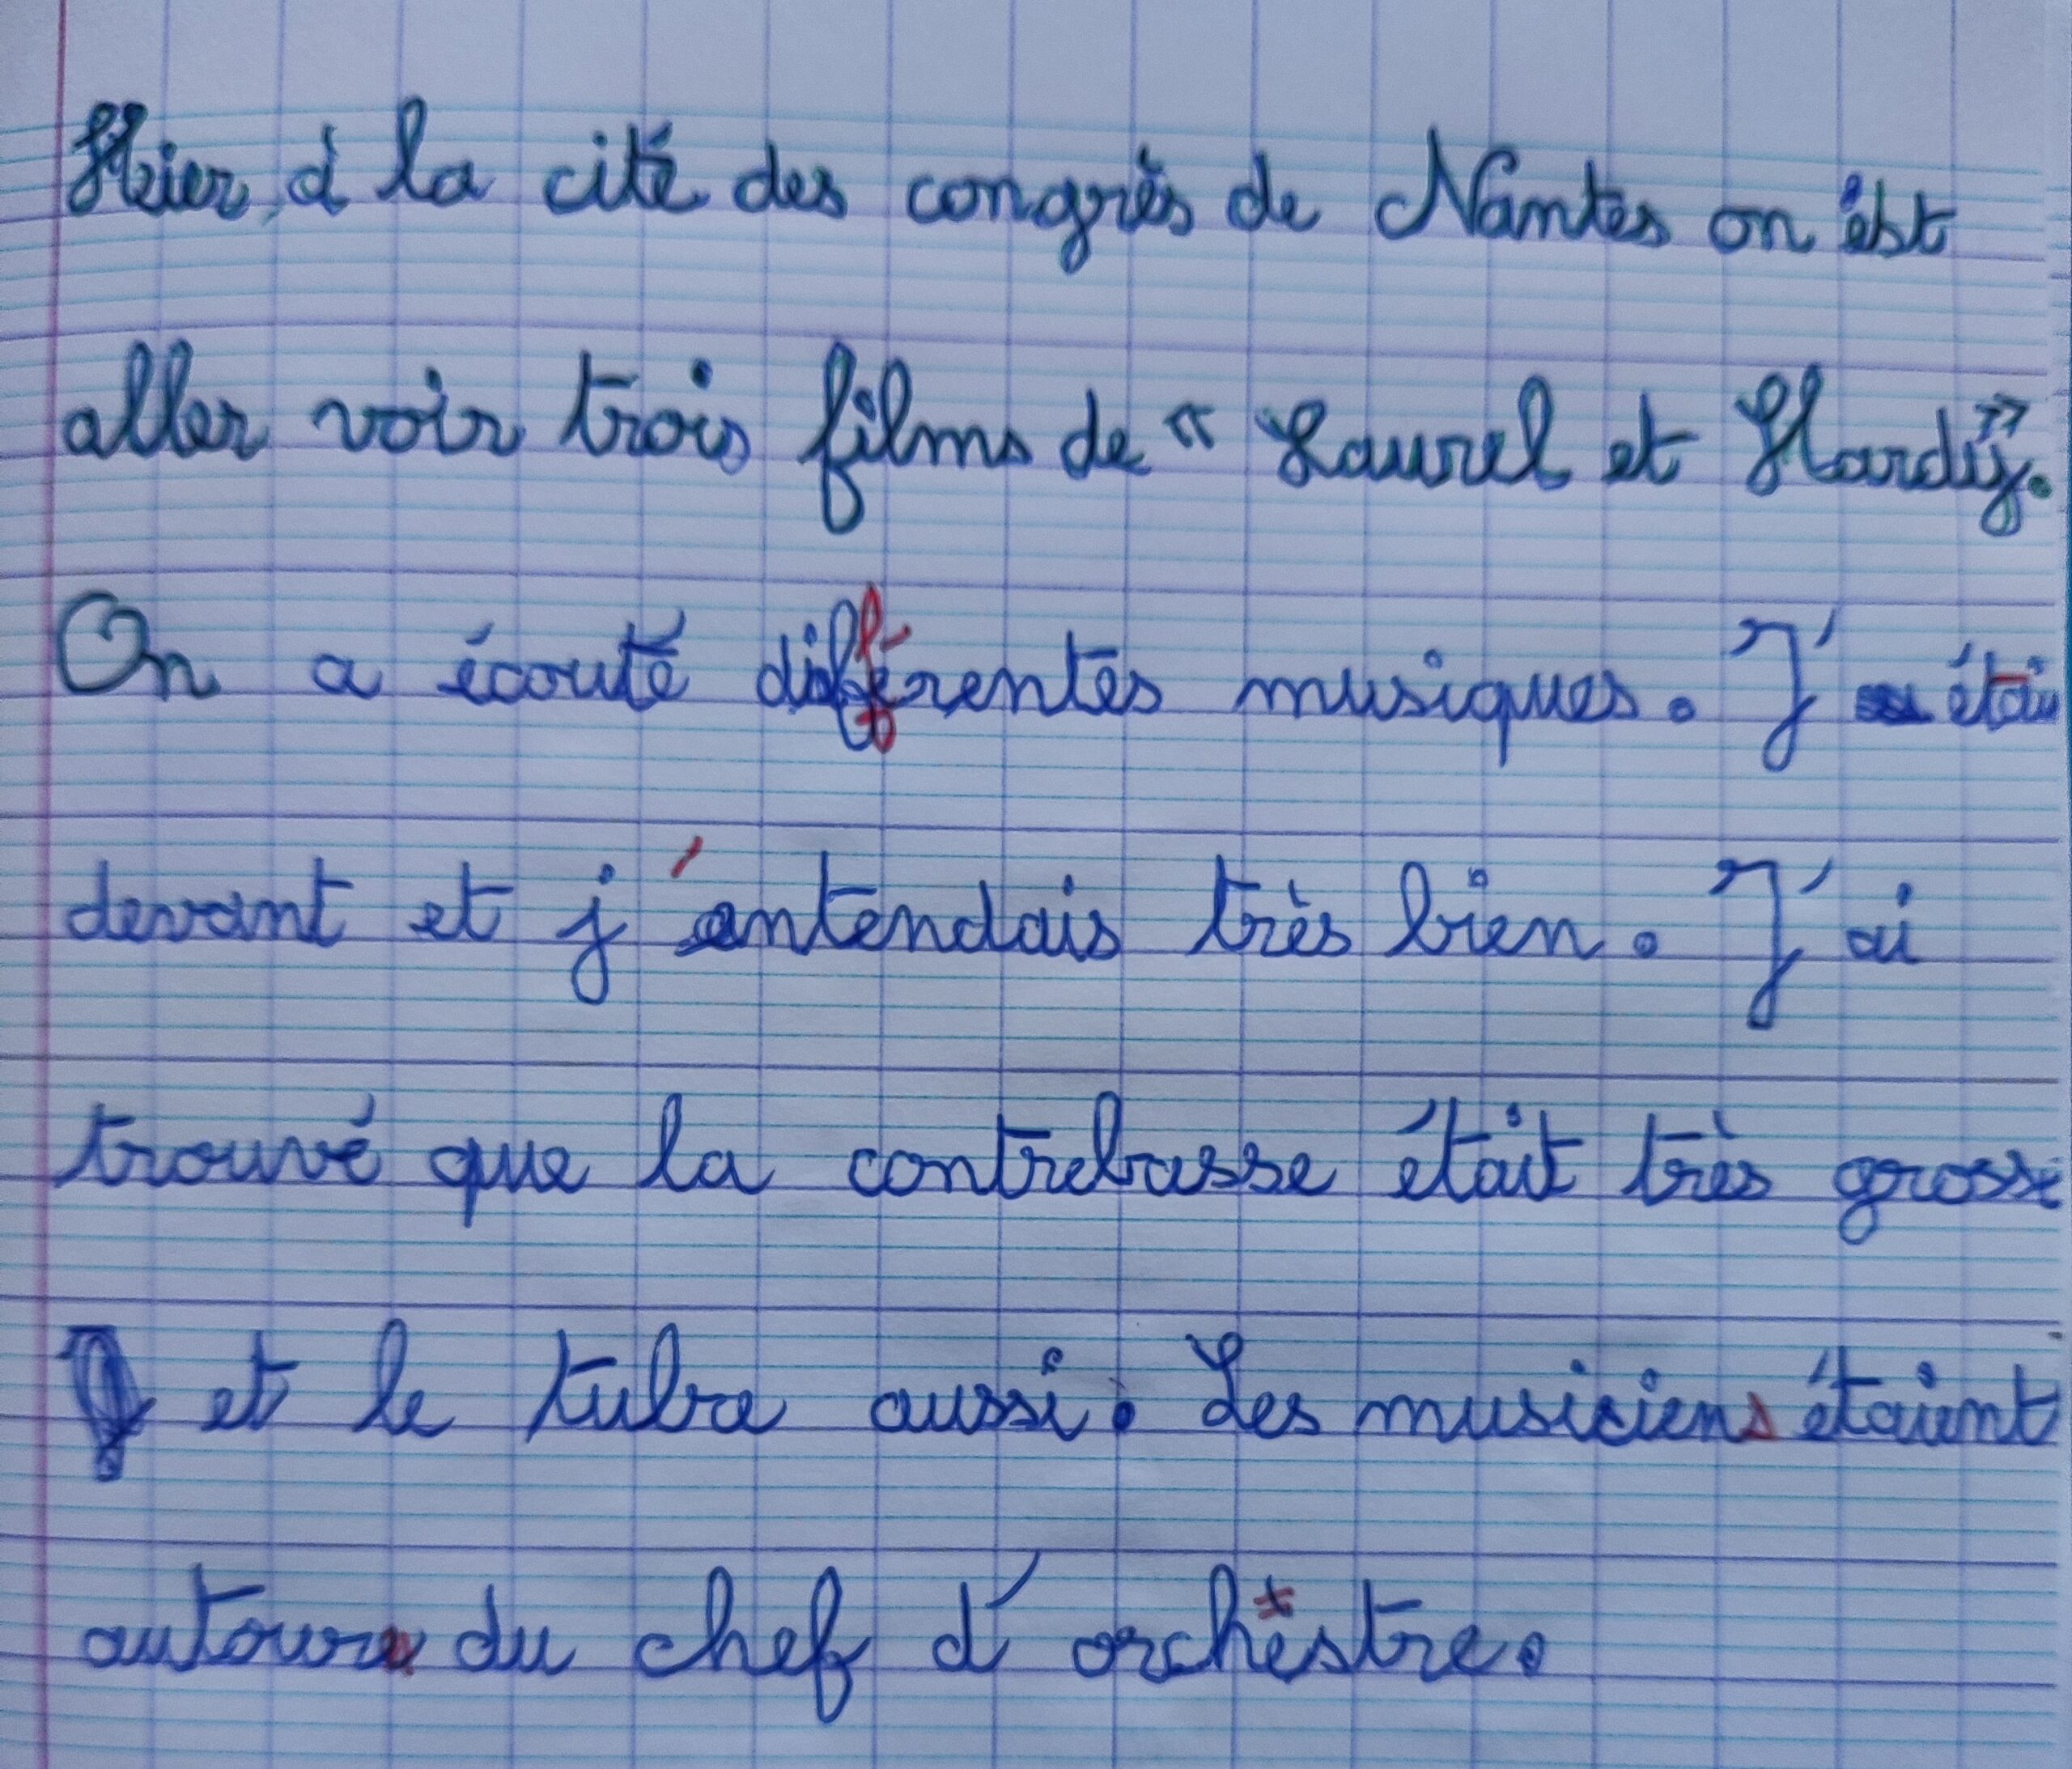 Hier, à la cité des congrès de Nantes on est
aller voir trois films de " Laurel et Hardy".
On a écouté différentes musiques. J' étais
devant et j'entendais très bien. J'ai
trouvé que la contrebasse était très grosse
et le tuba aussi. Les musiciens étaient
autour du chef d'orchestre.